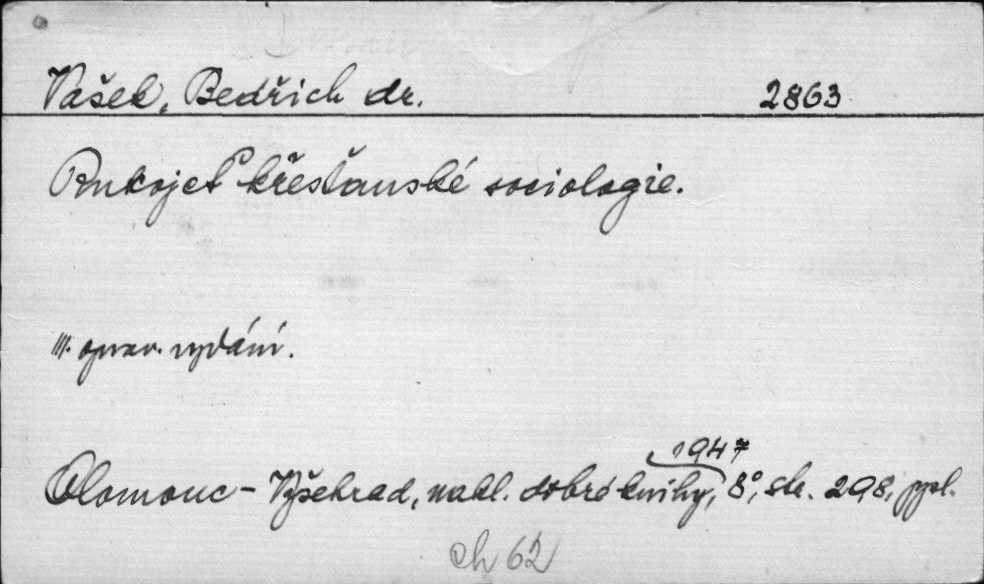 Vašek, Bedřich dr. 2863
Rukojeť křesťanské sociologie.
III. oprav. vydání.
Olomouc - Vyšehrad, nakl. dobré knihy, 1947 8°, str. 298,
ch 62